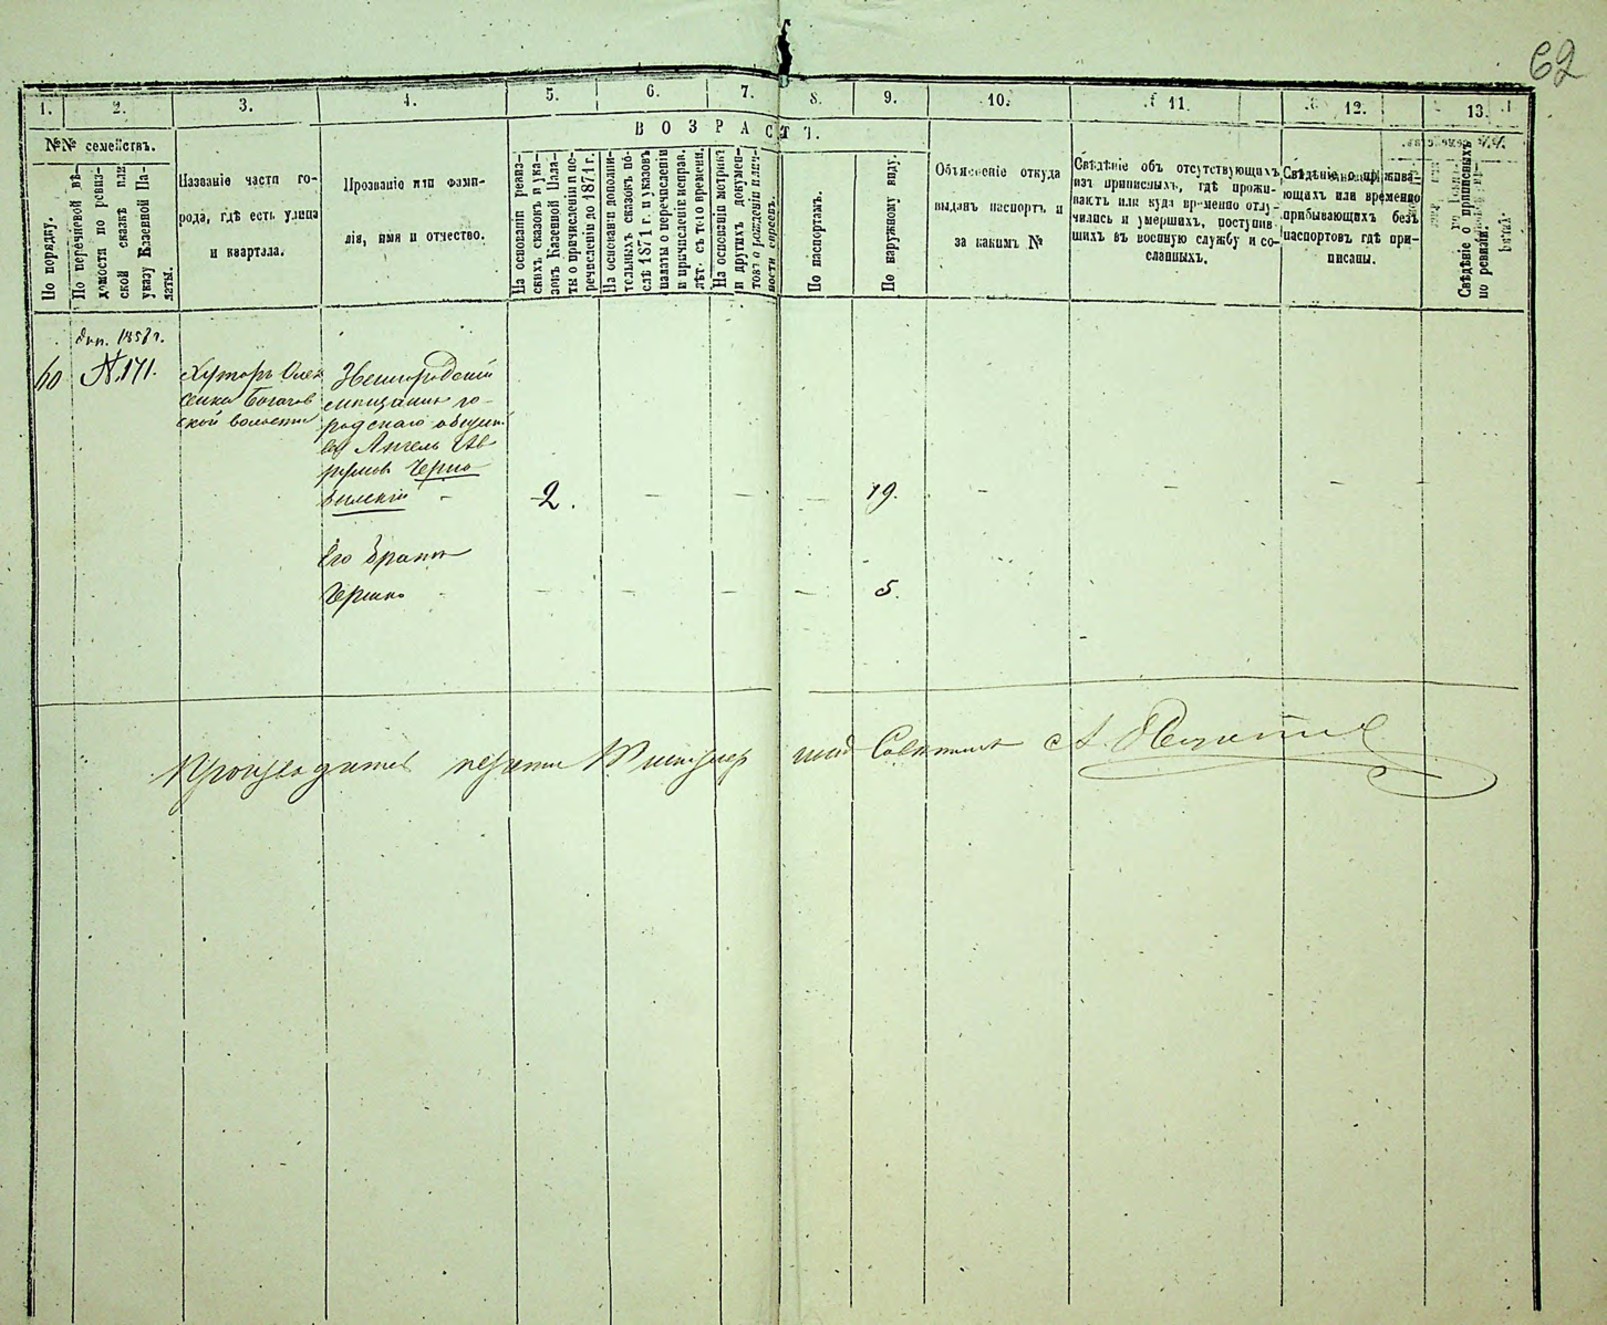 62
1. 2. 3. 4. 5. 6. 7. 8. 9. 10. 11. 12. 13.
№№ семействъ.
По порядку.
По перечневой вѣ-
домости по ревиз-
ской сказкѣ или
указу Казенной Па-
латы.
Названіе части го-
рода, гдѣ есть улица
и квартала.
Прозваніе или фами-
лія, имя и отчество.
ВОЗРАСТЪ.
На основаніи ревиз-
скихъ сказокъ и ука-
зовъ Казенной Пала-
ты о причисленіи и пе-
речисленіи до 1871 г.
На основаніи дополни-
тельныхъ сказокъ по-
слѣ 1871 г. и указовъ
палаты о перечисленіи
и причисленіе исправ.
лѣт. съ того времени.
На основаніи метрикъ
и другихъ докумен-
товъ о рожденіи
По паспортамъ.
По наружному виду.
Объясненіе откуда
выданъ паспортъ и
за какимъ №
Свѣдѣніе объ отсутствующихъ
изъ приписныхъ, гдѣ прожи-
ваютъ или куда временно отлу-
чились и умершихъ, поступив-
шихъ въ военную службу и со-
сланныхъ.
Свѣдѣніе о прожива-
ющихъ или временно
прибывающихъ безъ
паспортовъ гдѣ при-
писаны.
Свѣдѣніе о приписныхъ
по ревизіи.
доп. 1858 г.
60 №.171.
Хуторъ Олек
сенка Богачев
ской волости
Звенигородскій
мещанинъ го-
родскаго общест
ва Ангель Ав
румовъ Черно
быльскій -
2. — — — 19. — — — —
Его братъ
Гершко - — — — — 5.
Производитель переписи